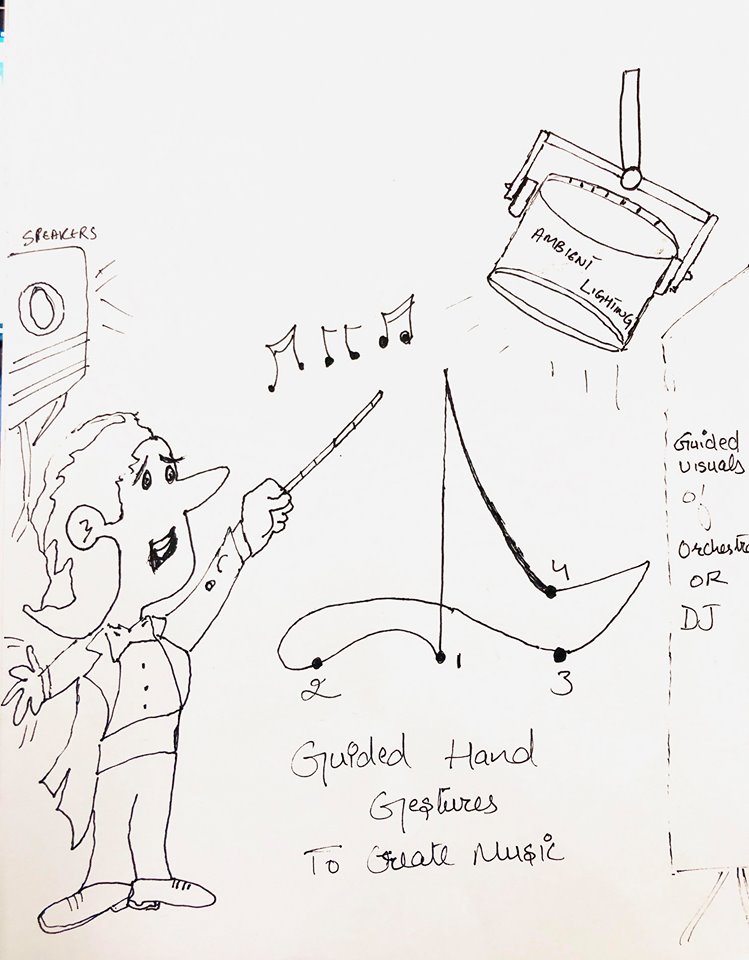 SPEAKERS
AMBIENT
LIGHTING
Guided
visuals
of
Orchestra
OR
DJ
4
1
2
3
Guided Hand
Gestures
To Create Music